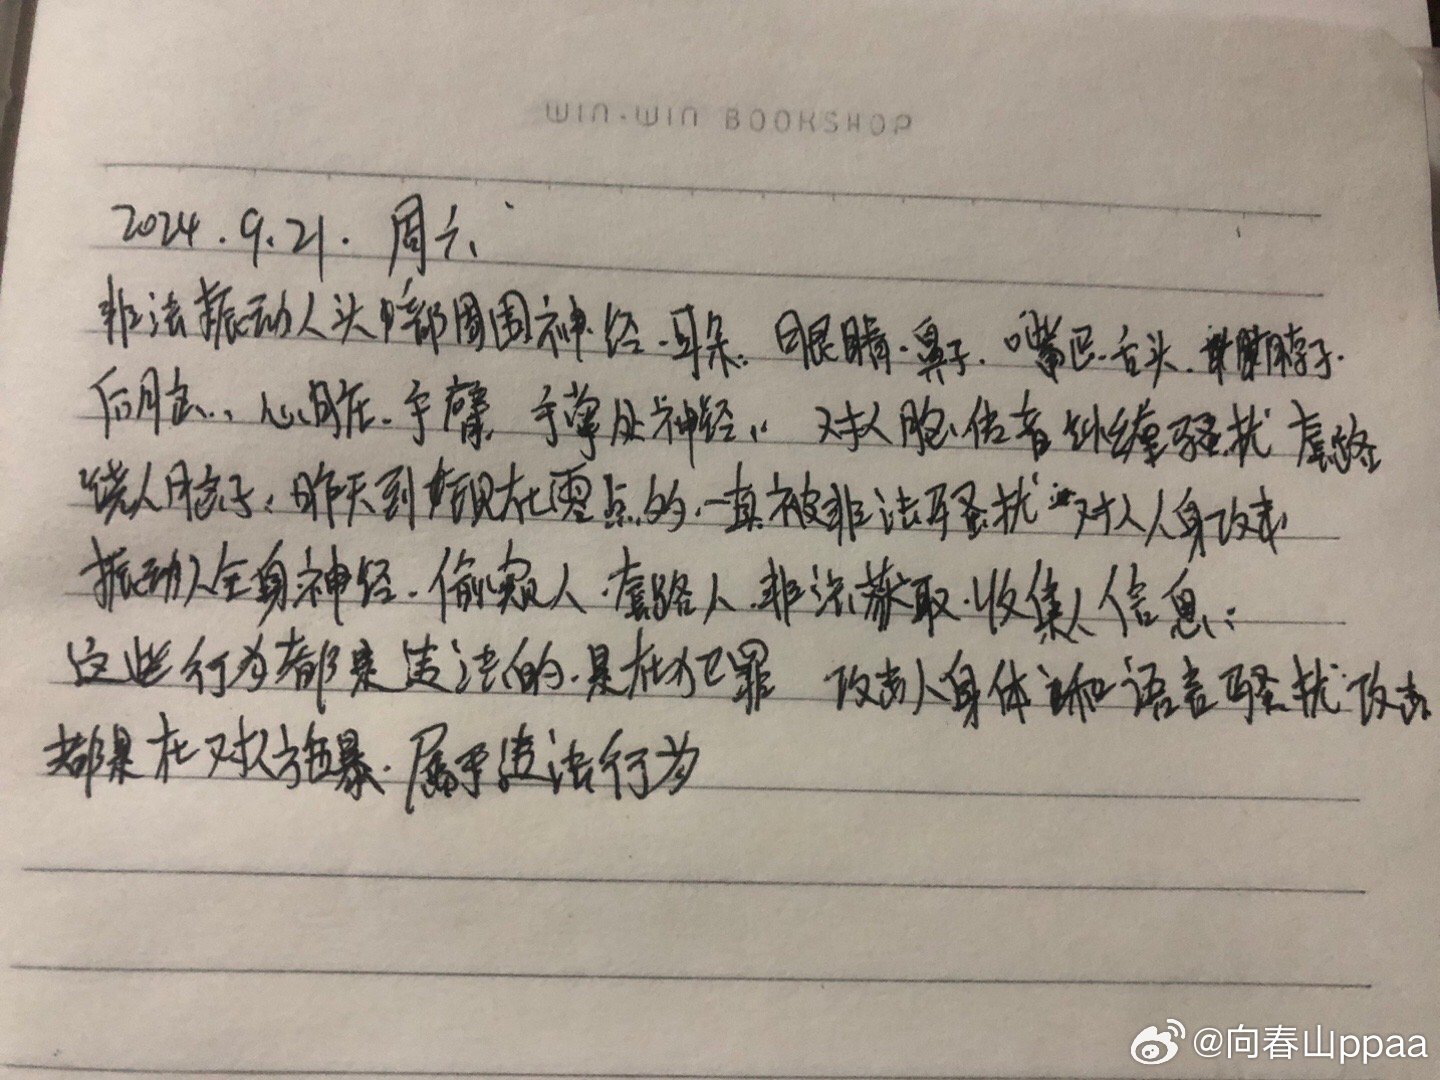 WIN·WIN BOOKSHOP
2024.9.21. 周六
非法振动人头部周围神经.耳朵.眼睛.鼻子.嘴巴.舌头.脖子.
后 心脏.手臂 手掌处神经.. 对人 纠缠骚扰 套路
绕人脖子.昨天到现在零点的.一直被非法骚扰 对人人身攻击
振动人全身神经.偷窥人.套路人.非法获取.收集人信息:
这些行为都是违法的.是在犯罪 攻击人身体和语言骚扰攻击
都是在对人施暴.属于违法行为
@向春山ppaa